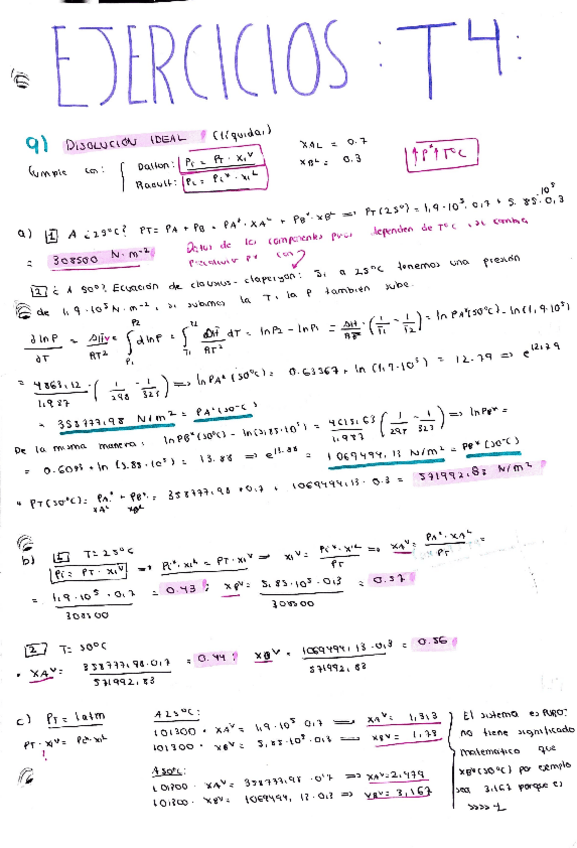 EJERCICIOS: T4:
9) DISOLUCIÓN IDEAL (líquida)
Cumple con: { Dalton: Pi = PT · xiV
Raoult: Pi = Pi* · xiL
XAL = 0.7
XBL = 0.3
↑P* ↑TºC
a) 1 A ¿25ºC? PT = PA + PB = PA* · XAL + PB* · XBL ⇒ PT(25º) = 1,9·10⁵ · 0,7 + 5.85·10⁵·0,3
= 308500 N·m-2
Datos de los componentes puros dependen de TºC
2 ¿A 50º? Ecuación de clausius-clapeyron: Si a 25ºC tenemos una presión
de 1,9·10⁵ N·m-2, si subimos la T, la P también sube.
= 4863,12/1,987 · (1/298 - 1/323) ⇒ ln PA* (50ºC) = 0.63367 + ln (1,9·10⁵) = 12.79 ⇒ e12,79
= 358777,98 N/m² = PA*(50ºC)
De la misma manera: ln PB*(50ºC) - ln(5,85·10⁵) = 4613,63/1,987 (1/298 - 1/323) ⇒ ln PB* =
= 0.6093 + ln (5.85·10⁵) = 13.88 ⇒ e13.88 = 1069494,13 N/m² = PB*(50ºC)
PT(50ºC) = PA* XAL + PB* XBL = 358777,98 · 0,7 + 1069494,13 · 0.3 = 571992,83 N/m²
b) 1 T = 25ºC
Pi = PT · xiV ⇒ Pi* · xiL = PT · xiV ⇒ xiV = Pi* · xiL / PT ⇒ XAV = PA* · XAL / PT =
= 1,9·10⁵ · 0,7 / 308500 = 0.43; XBV = 5,85·10⁵ · 0,3 / 308500 = 0.57
2 T = 50ºC
· XAV = 358777,98 · 0,7 / 571992,83 = 0.44; XBV = 1069494,13 · 0,3 / 571992,83 = 0.56
c) PT = 1atm
PT · xiV = Pi* · xiL
A 25ºC:
101300 · XAV = 1,9·10⁵ · 0,7 ⇒ XAV = 1,313
101300 · XBV = 5,85·10⁵ · 0,3 ⇒ XBV = 1,73
A 50ºC:
101300 · XAV = 358777,98 · 0,7 ⇒ XAV = 2,479
101300 · XBV = 1069494,13 · 0,3 ⇒ XBV = 3,167
El sistema es PURO:
no tiene significado
matemático que
XBV(50ºC) por ejemplo
sea 3,167 porque es
>>>> 1